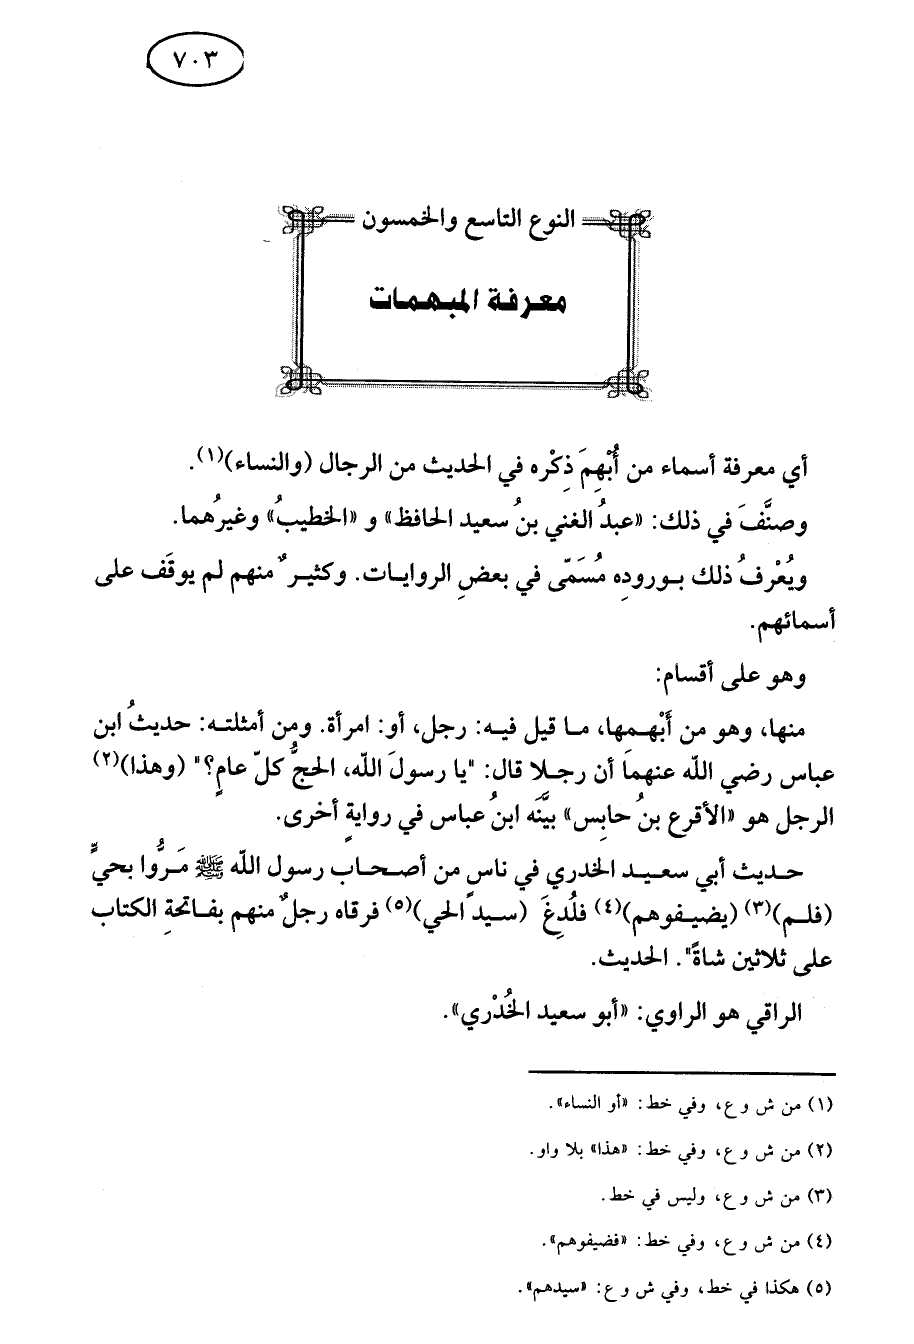 ٧٠٣
النوع التاسع والخمسون
معرفة المبهمات
أي معرفة أسماء من أُبْهِمَ ذِكْره في الحديث من الرجال (والنساء)(١).
وصنَّفَ في ذلك: «عبدُ الغني بنُ سعيد الحافظ» و «الخطيبُ» وغيرُهما.
ويُعْرفُ ذلك بـورودِه مُسَمّى في بعضِ الروايـات. وكثيـرٌ منهم لم يوقَف على
أسمائهم.
وهو على أقسام:
منها، وهو من أَبْهـمها، مـا قيل فيـه: رجل، أو: امرأة. ومن أمثلتـه: حديثُ ابن
عباس رضي الله عنهما أن رجـلا قال: "يا رسولَ الله، الحجُّ كلّ عامٍ؟" (وهذا)(٢)
الرجل هو «الأقرع بنُ حابِس» بيَّنَه ابنُ عباس في روايةٍ أخرى.
حـديث أبي سعـيـد الخدري في ناسٍ من أصـحـاب رسول الله ﷺ مَـرُّوا بحيٍّ
(فلـم)(٣) (يضيـفوهم)(٤) فلُدِغَ (سـيـد الحي)(٥) فرقاه رجلٌ منهم بفـاتحةِ الكتاب
على ثلاثين شاةً". الحديث.
الراقي هو الراوي: «أبو سعيد الخُدْري».
(١) من ش و ع، وفي خط: «أو النساء».
(٢) من ش و ع، وفي خط: «هذا» بلا واو.
(٣) من ش و ع، وليس في خط.
(٤) من ش و ع، وفي خط: «فضيفوهم».
(٥) هكذا في خط، وفي ش و ع: «سيدهم».